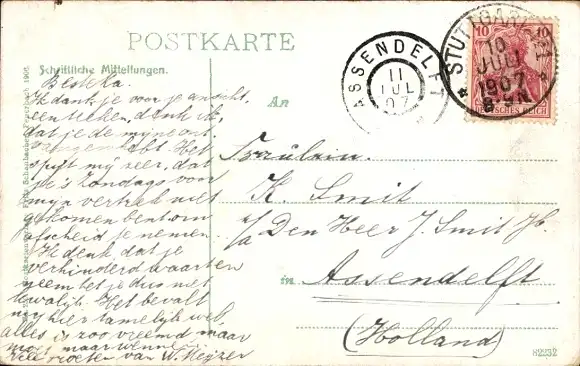 POSTKARTE
Schriftliche Mitteilungen.
Beste Ka.
Ik dank je voor je ansicht,
een teeken, denk ik,
dat je de mijne ont-
vangen hebt. Het
spijt mij zeer, dat
je 's Zondags voor
mijn vertrek niet
gekomen bent om
afscheid je nemen.
Ik denk, dat je
verhinderd waart en
neem het je dus niet
kwalijk. Het bevalt
mij hier tamelijk wel,
alles is zoo vreemd maar
moet maar wennen.
Vele groeten van W. Keyzer
An
Fräulein.
K. Smit
p/a Den Heer J. Smit Jb
in Assendelft
(Holland)
62232
ASSENDELFT
11
JUL
07
STUTTGART
10
JULI
1907
10 10
DEUTSCHES REICH